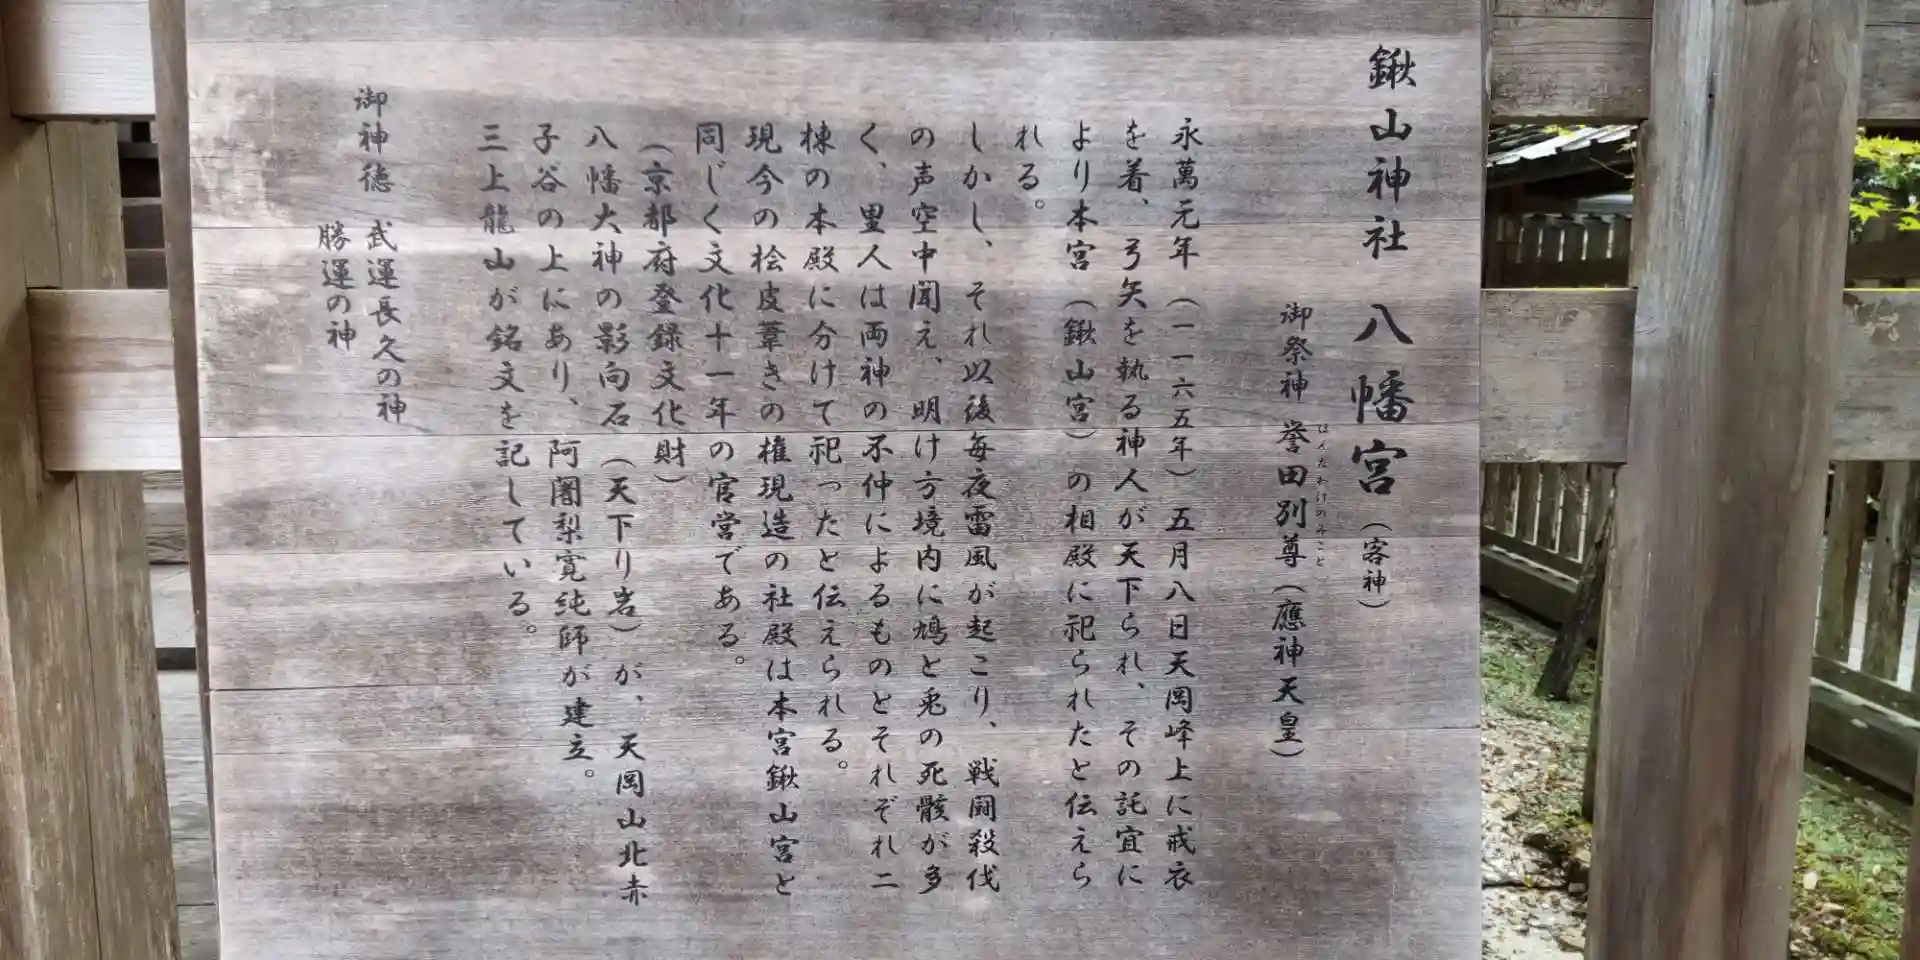 鍬山神社 八幡宮(客神)
御祭神 誉田別尊(應神天皇)
ほんだわけのみこと
永萬元年(一一六五年)五月八日天岡峰上に戒衣
を着、弓矢を執る神人が天下られ、その託宜に
より本宮(鍬山宮)の相殿に祀られたと伝えら
れる。
しかし、それ以後毎夜雷風が起こり、戦闘殺伐
の声空中聞え、明け方境内に鳩と兎の死骸が多
く、里人は両神の不仲によるものとそれぞれ二
棟の本殿に分けて祀ったと伝えられる。
現今の桧皮葺きの権現造の社殿は本宮鍬山宮と
同じく文化十一年の官営である。
(京都府登録文化財)
八幡大神の影向石(天下り岩)が、天岡山北赤
子谷の上にあり、阿闍梨寛純師が建立。
三上龍山が銘文を記している。
御神徳 武運長久の神
勝運の神